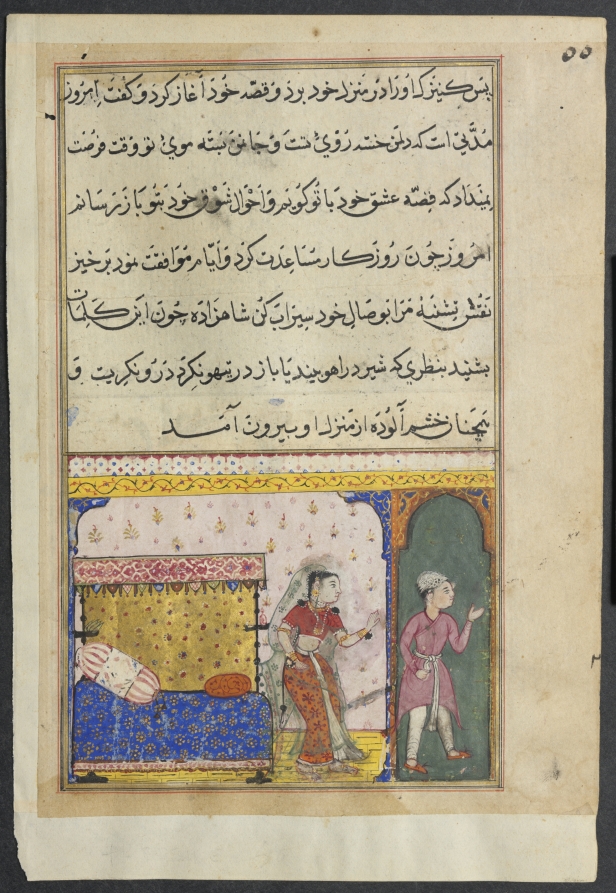 ۵۵
پس کنیزک او را در منزل خود برد و قصه خود آغاز کرد و گفت امروز
مدتی است که دلمن خسته روئ تست و جانمن بسته موئ تو وقت فرصت
نمیداد که قصه عشق خود با تو گویم و احوال شوق خود بتو باز رسانم
امروز چون روزکار مساعدت کرد و ایام موافقت نمود برخیز
تشنهٔ مرا بوصال خود سیراب کن شاهزاده چون این کلمات
بشنید بنظری که شیر در اهو بیند یا باز در تیهو نکرد درو نکریت و
همچنان خشم آلوده از منزل او بیرون آمد